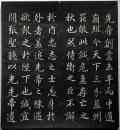 先帝創業未半而中道
崩殂今天下三分益州
罷敝此誠危急存亡之
秋也然侍衛之臣不懈
於內忠志之士忘身於
外者蓋追先帝之殊遇
欲報之於陛下也誠宜
開張聖聽以光先帝遺